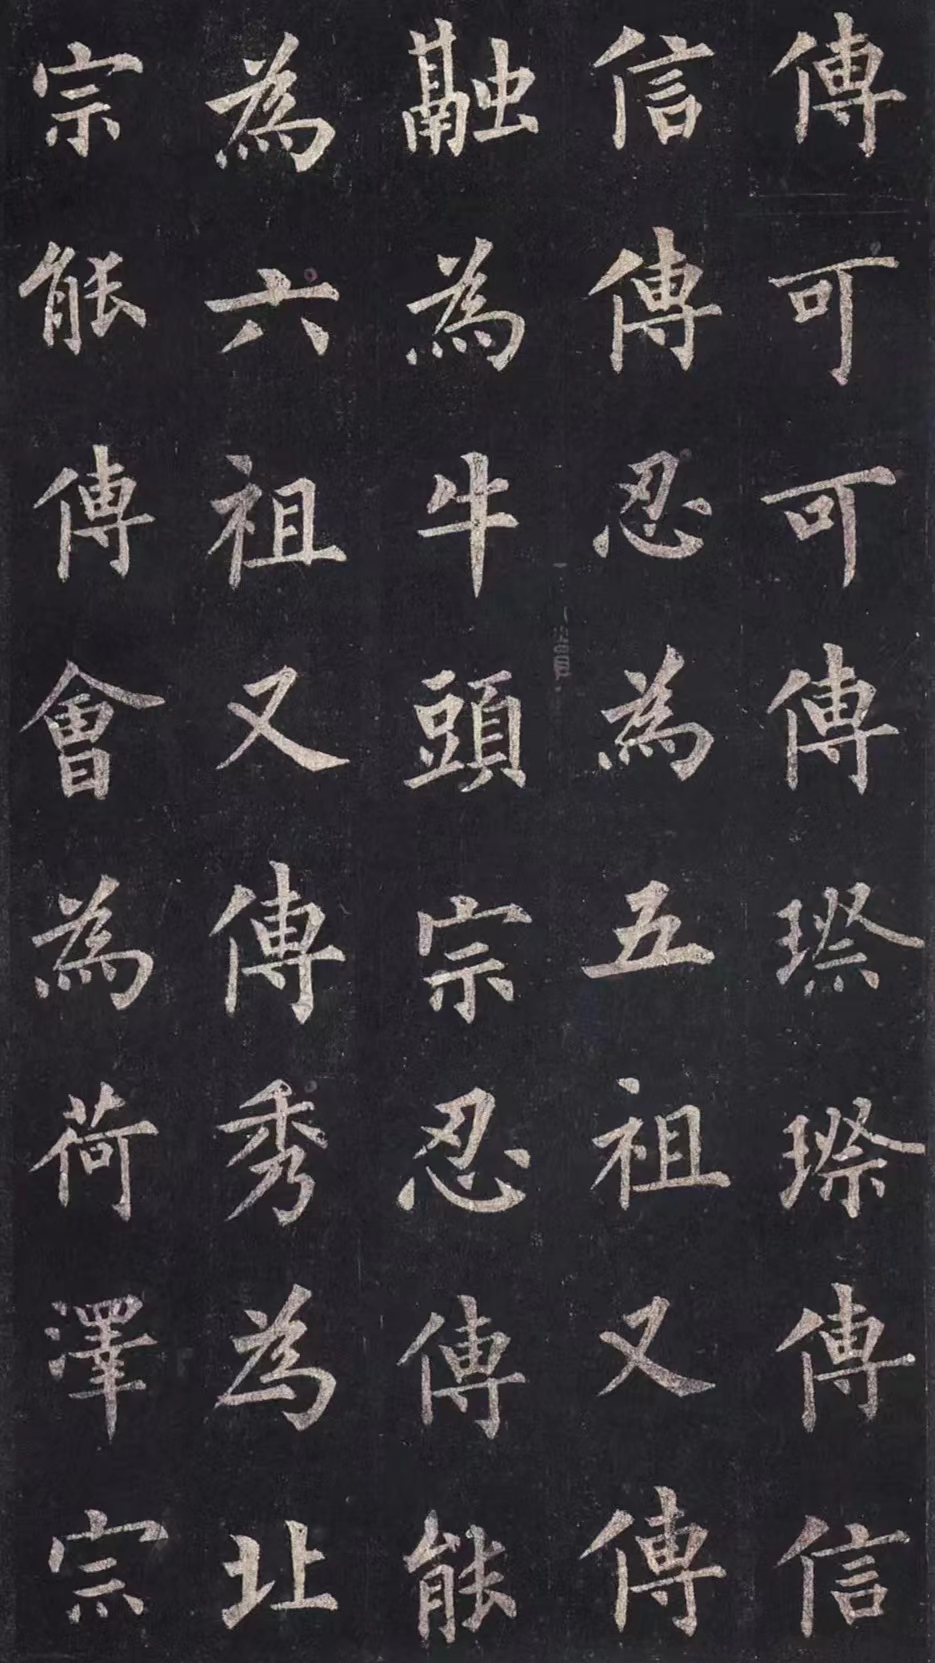 傳可可傳璨璨傳信
信傳忍為五祖又傳
融為牛頭宗忍傳能
為六祖又傳秀為北
宗能傳會為荷澤宗